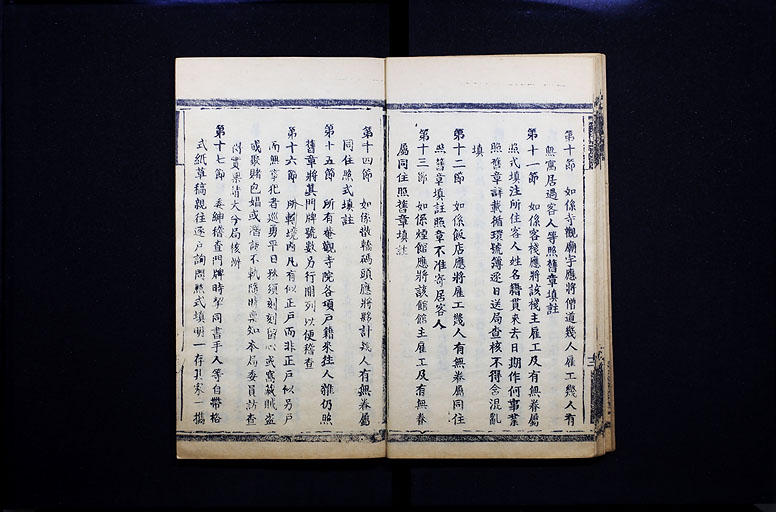 第十節　如係寺觀廟宇應將僧道幾人雇工幾人有
無寓居過客人等照舊章填註
第十一節　如係客棧應將該棧主雇工及有無眷屬
照式填注所住客人姓名籍貫來去日期作何事業
照舊章詳載循環號簿逐日送局查核不得含混亂
填
第十二節　如係飯店應將雇工幾人有無眷屬同住
照舊章填註照章不准寄居客人
第十三節　如係煙館應將該館館主雇工及有無眷
屬同住照舊章填註
第十四節　如係轎碼頭應將夥計幾人有無眷屬
同住照式填註
第十五節　所有菴觀寺院各項戶籍來往人雜仍照
舊章將其門牌號數另行開列以便稽查
第十六節　所轄境內凡有似正戶而非正戶似另戶
而無犯者巡勇平日務須刻刻留心或窩藏賊盜
或聚賭包娼或潛謀不軌隨時稟知本局委員訪查
果情大分局核辦
第十七節　委紳稽查門牌時挈同書手人等自帶格
式紙草稿親往逐戶詢問照式填明一存引家一攜